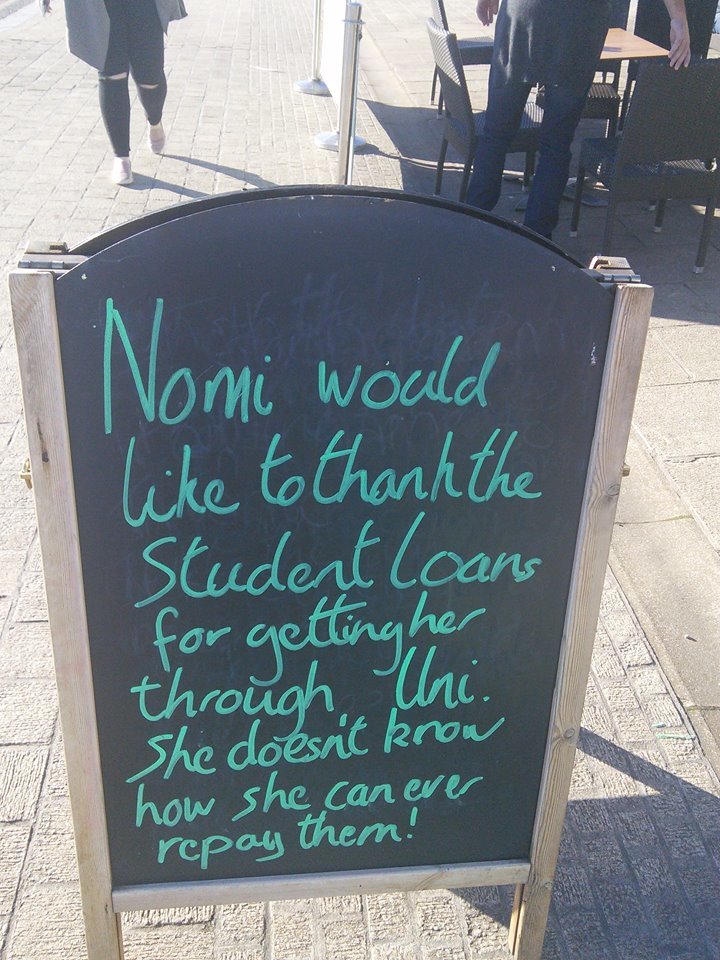 Nomi would
like to thank the
Student Loans
for getting her
through Uni.
She doesn't know
how she can ever
repay them!